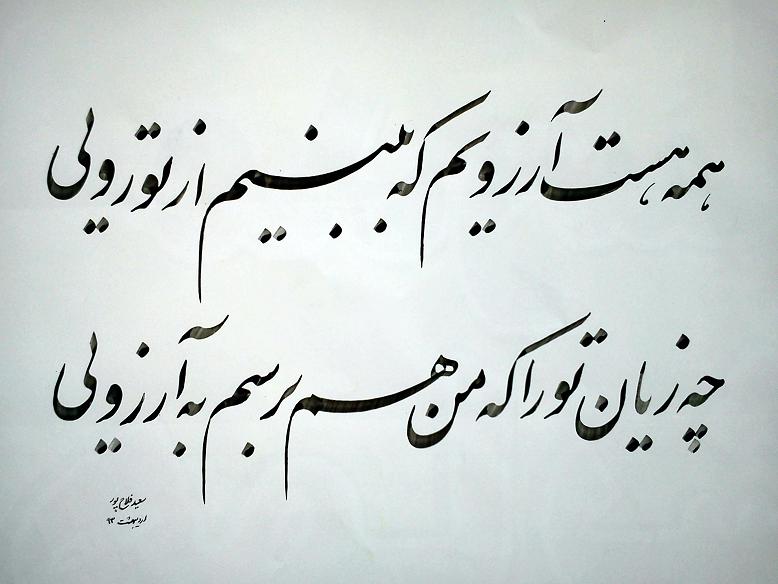 همه هست آرزویم که ببینم از تو رویی
چه زیان تو را که من هم برسم به آرزویی
سعید فلاح پور
اردیبهشت ۹۳